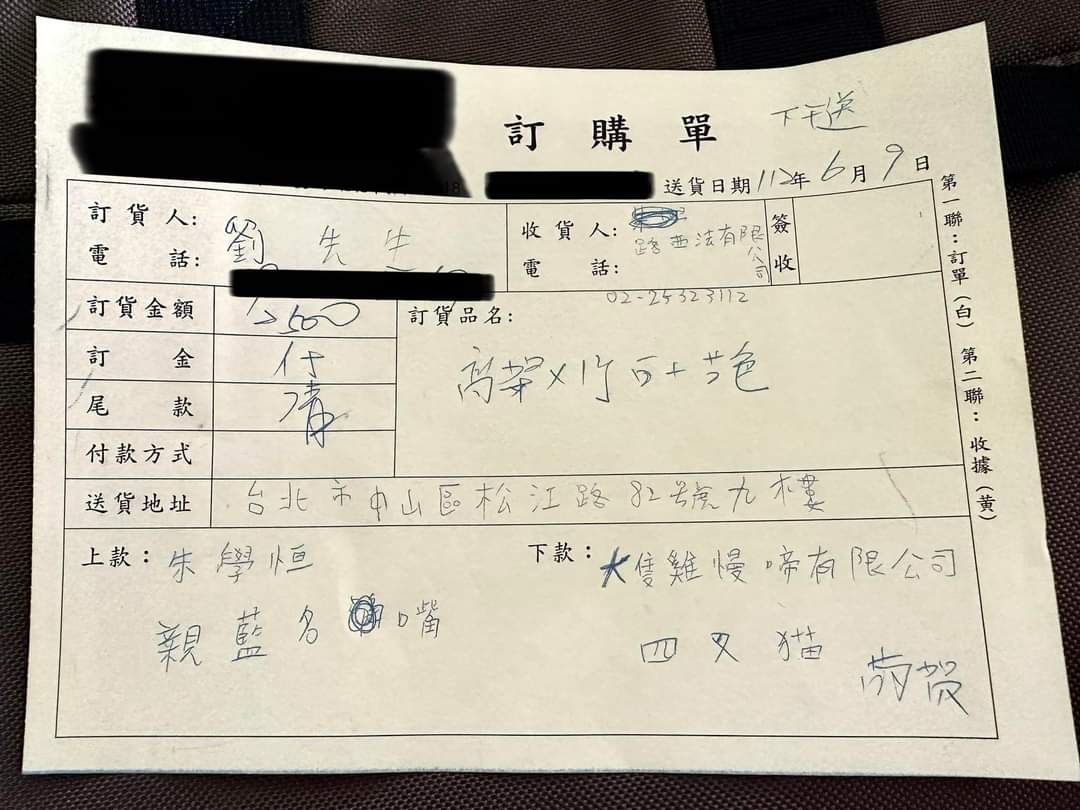 訂購單
下午送
送貨日期 112年6月9日
訂貨人: 劉先生
電話:
收貨人: 路西法有限公司
電話: 02-25323112
簽收
訂貨金額 12500
訂金 付
尾款 清
付款方式
訂貨品名:
高架X1
送貨地址 台北市中山區松江路82號九樓
上款: 朱學恒
親藍名嘴
下款: 大隻雞慢啼有限公司
四叉猫
第一聯:訂單(白) 第二聯:收據(黃)